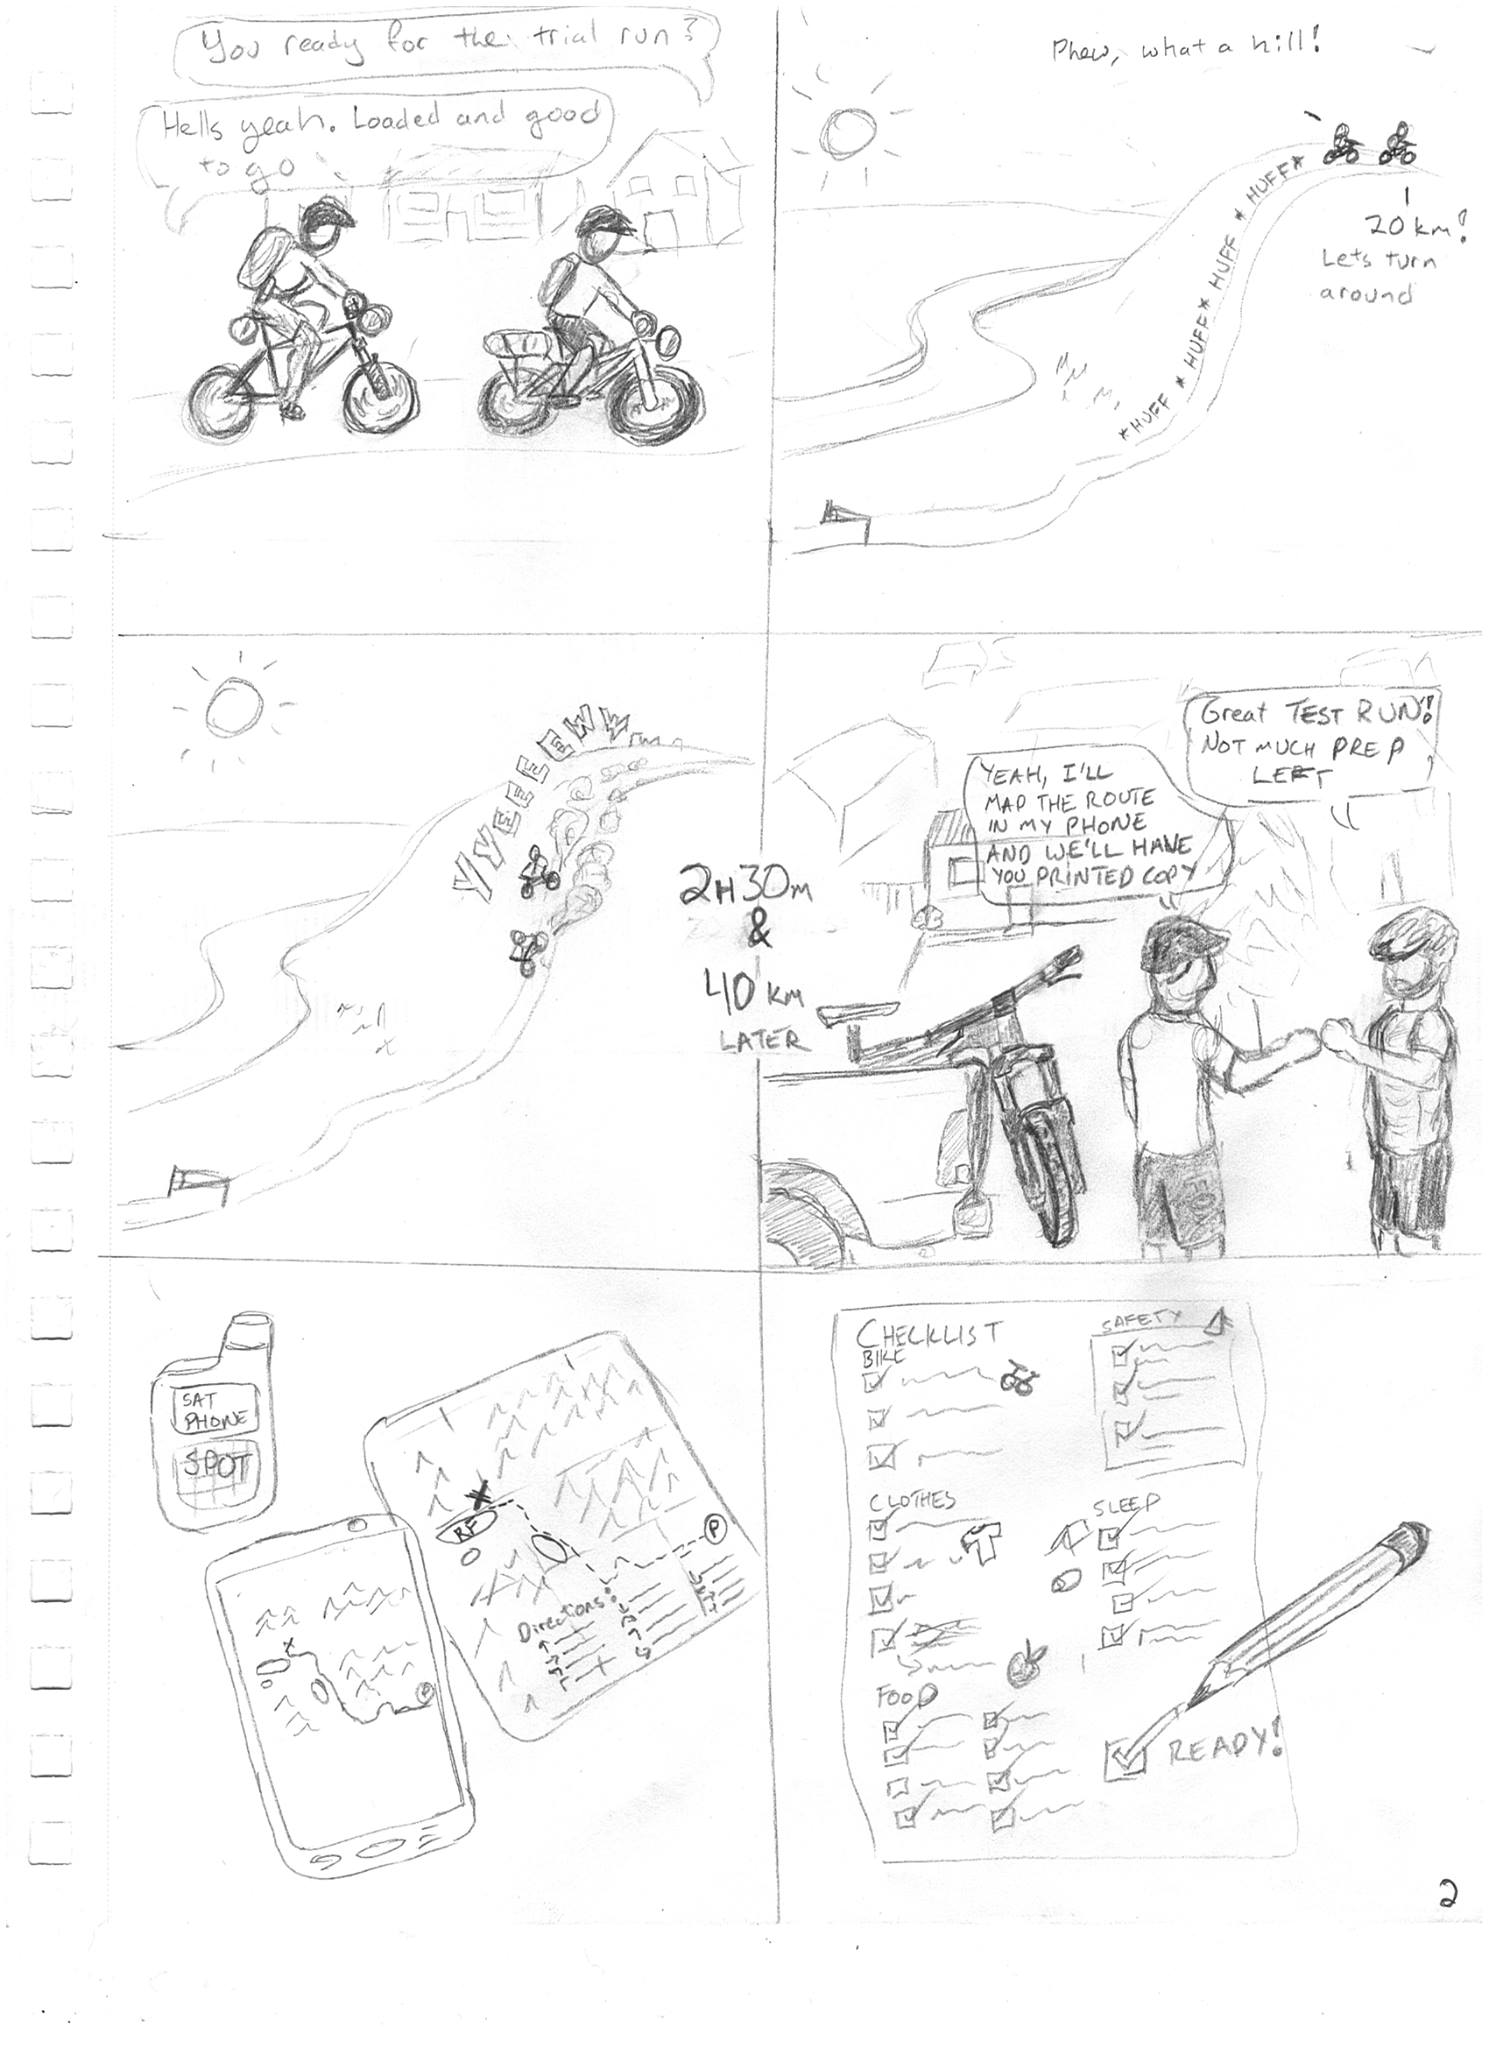 You ready for the trial run?
Hells yeah. Loaded and good
to go
Phew, what a hill!
*HUFF*HUFF*HUFF*HUFF*
20 km!
Lets turn
around
YYEEEEWW
2H30m
&
40 km
LATER
Great TEST RUN!
NOT MUCH PREP
LEFT
YEAH, I'LL
MAP THE ROUTE
IN MY PHONE
AND WE'LL HAVE
YOU PRINTED COPY
FOX
SAT
PHONE
SPOT
X
RF
P
Directions:
X
P
CHECKLIST
BIKE
SAFETY
CLOTHES
SLEEP
FOOD
READY!
2